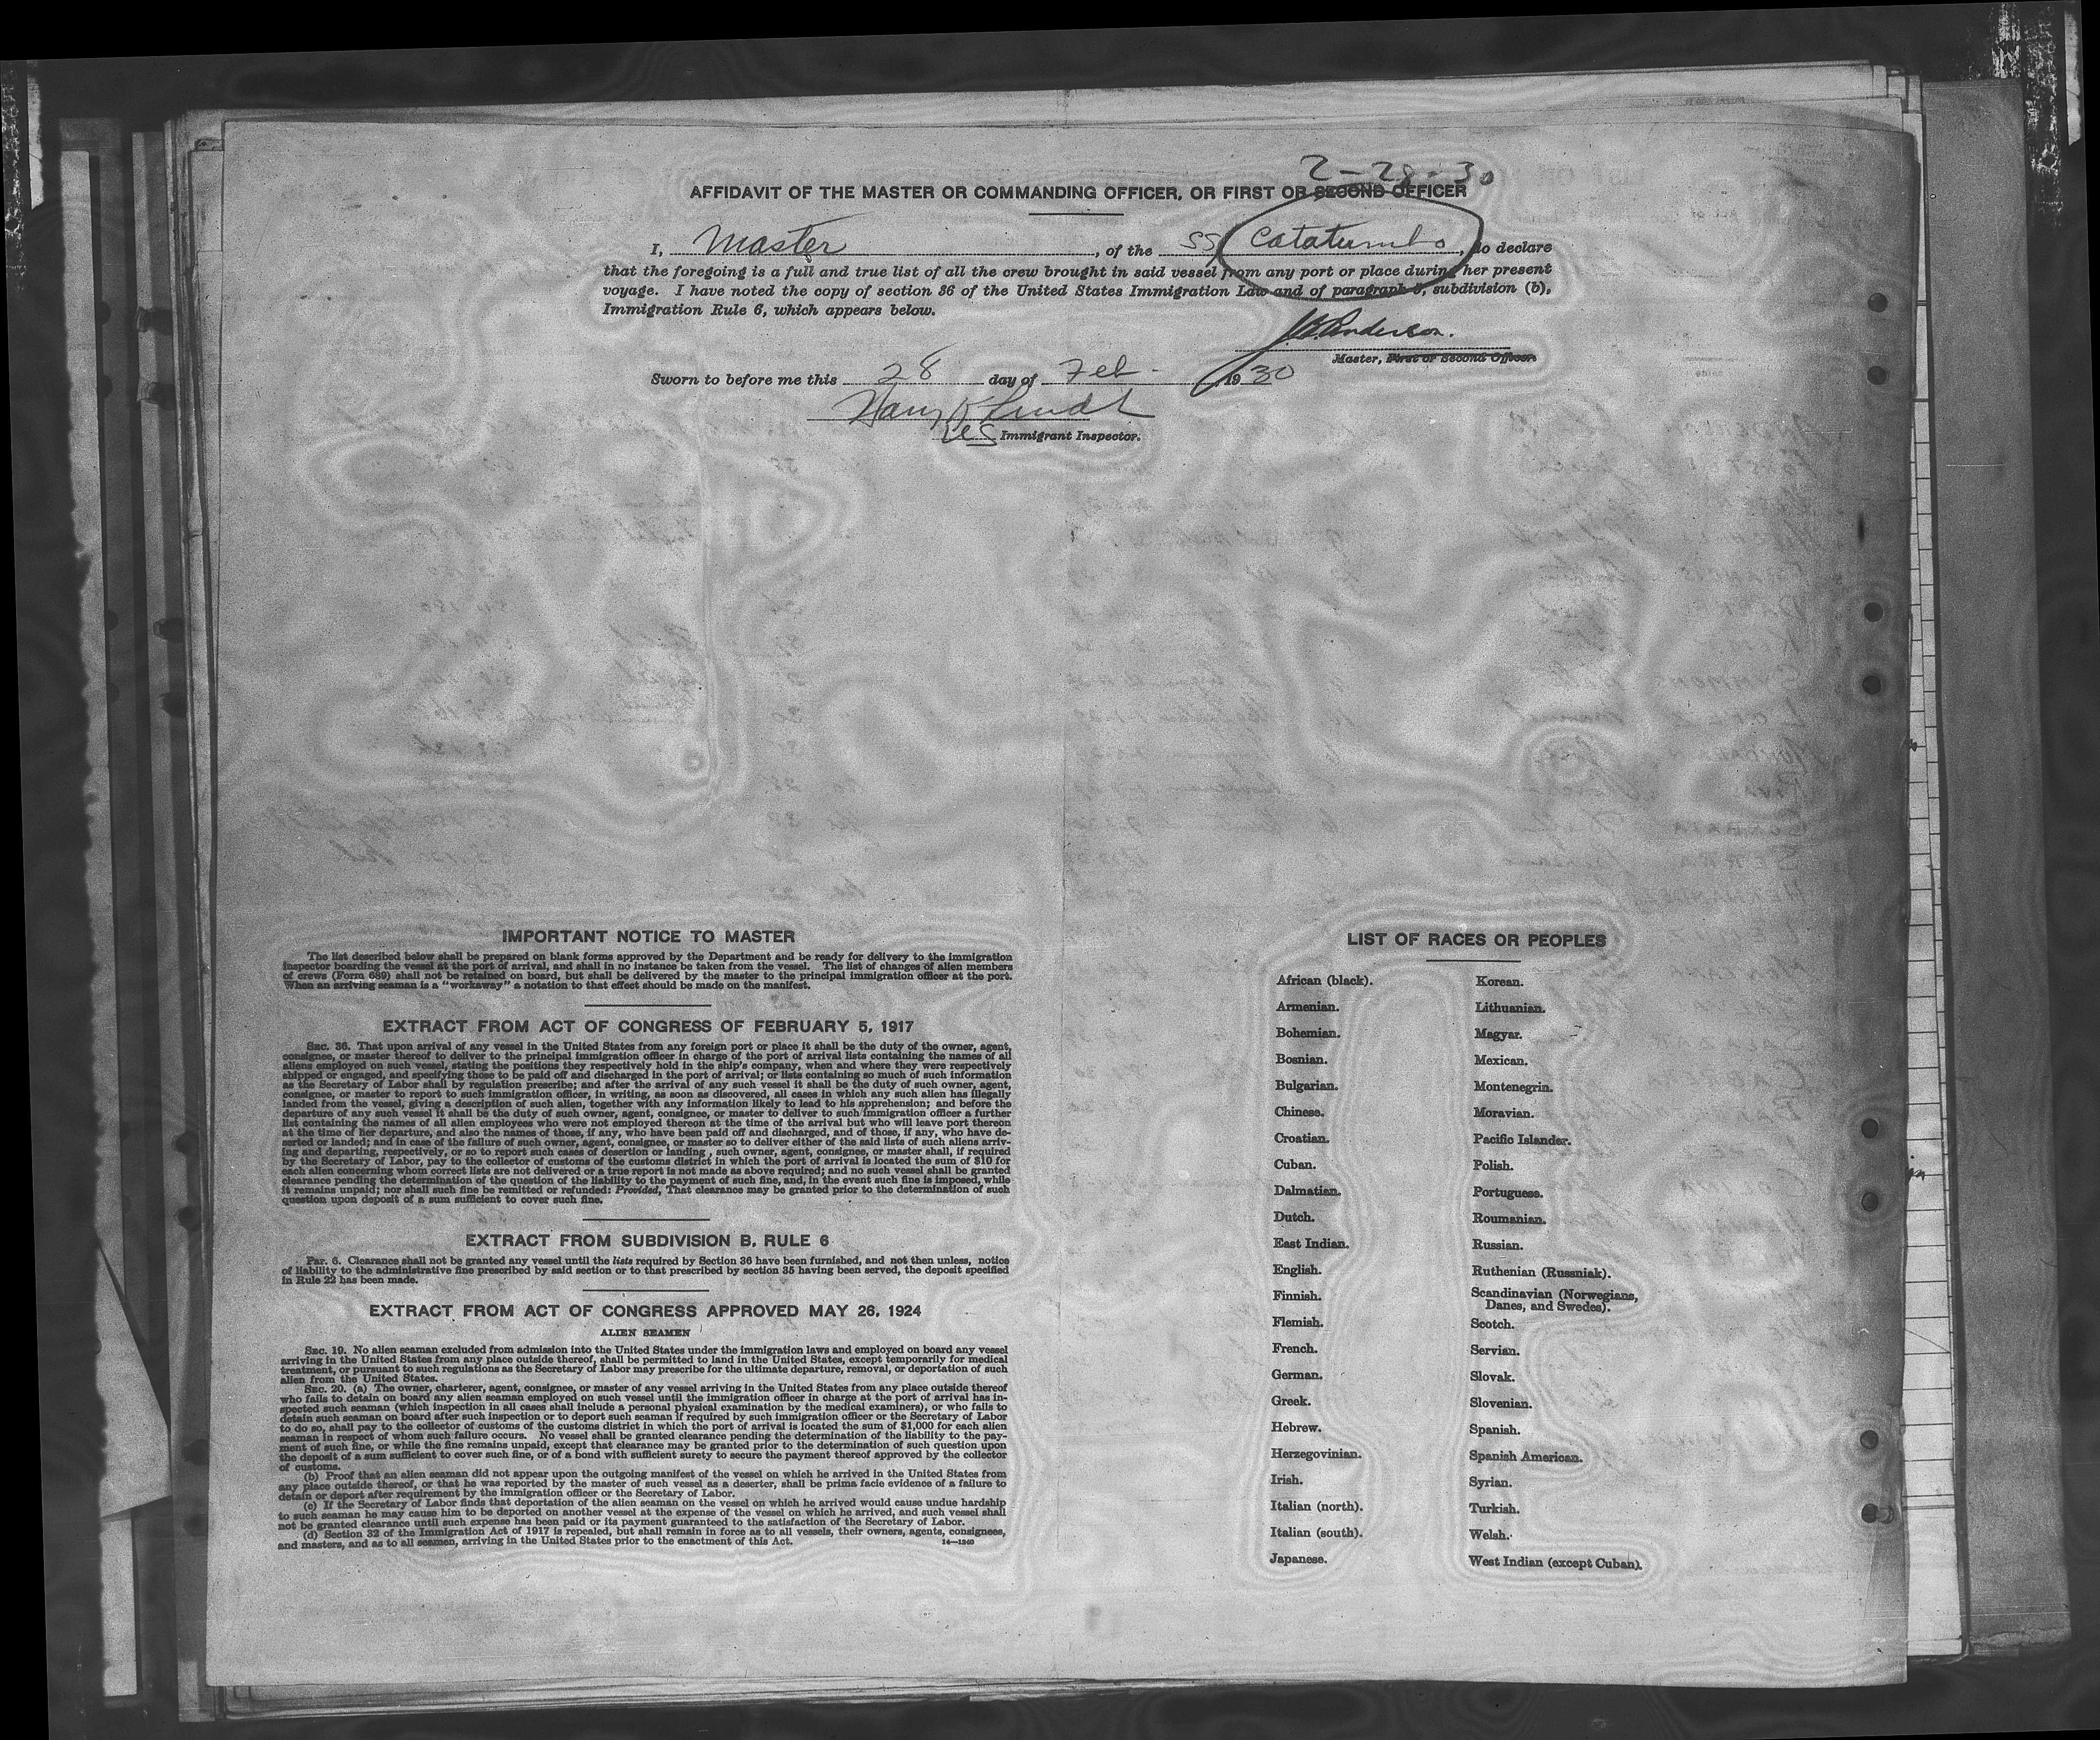 2-28-30
AFFIDAVIT OF THE MASTER OR COMMANDING OFFICER, OR FIRST OR SECOND OFFICER
I, Master, of the SS Catatumbo, do declare
that the foregoing is a full and true list of all the crew brought in said vessel from any port or place during her present
voyage. I have noted the copy of section 36 of the United States Immigration Law and of paragraph 6, subdivision (b),
Immigration Rule 6, which appears below.
Anderson.
Master, First or Second Officer.
Sworn to before me this 28 day of Feb. 1930
Harry
Immigrant Inspector.
IMPORTANT NOTICE TO MASTER
The list described below shall be prepared on blank forms approved by the Department and be ready for delivery to the immigration
inspector boarding the vessel at the port of arrival, and shall in no instance be taken from the vessel. The list of changes of alien members
of crews (Form 689) shall not be retained on board, but shall be delivered by the master to the principal immigration officer at the port.
When an arriving seaman is a "workaway" a notation to that effect should be made on the manifest.
EXTRACT FROM ACT OF CONGRESS OF FEBRUARY 5, 1917
SEC. 36. That upon arrival of any vessel in the United States from any foreign port or place it shall be the duty of the owner, agent,
consignee, or master thereof to deliver to the principal immigration officer in charge of the port of arrival lists containing the names of all
aliens employed on such vessel, stating the positions they respectively hold in the ship's company, when and where they were respectively
shipped or engaged, and specifying those to be paid off and discharged in the port of arrival; or lists containing so much of such information
as the Secretary of Labor shall by regulation prescribe; and after the arrival of any such vessel it shall be the duty of such owner, agent,
consignee, or master to report to such immigration officer, in writing, as soon as discovered, all cases in which any such alien has illegally
landed from the vessel, giving a description of such alien, together with any information likely to lead to his apprehension; and before the
departure of any such vessel it shall be the duty of such owner, agent, consignee, or master to deliver to such immigration officer a further
list containing the names of all alien employees who were not employed thereon at the time of the arrival but who will leave port thereon
at the time of her departure, and also the names of those, if any, who have been paid off and discharged, and of those, if any, who have de-
serted or landed; and in case of the failure of such owner, agent, consignee, or master so to deliver either of the said lists of such aliens arriv-
ing and departing, respectively, or so to report such cases of desertion or landing, such owner, agent, consignee, or master shall, if required
by the Secretary of Labor, pay to the collector of customs of the customs district in which the port of arrival is located the sum of $10 for
each alien concerning whom correct lists are not delivered or a true report is not made as above required; and no such vessel shall be granted
clearance pending the determination of the question of the liability to the payment of such fine, and, in the event such fine is imposed, while
it remains unpaid; nor shall such fine be remitted or refunded: Provided, That clearance may be granted prior to the determination of such
question upon deposit of a sum sufficient to cover such fine.
EXTRACT FROM SUBDIVISION B, RULE 6
PAR. 6. Clearance shall not be granted any vessel until the lists required by Section 36 have been furnished, and not then unless, notice
of liability to the administrative fine prescribed by said section or to that prescribed by section 35 having been served, the deposit specified
in Rule 22 has been made.
EXTRACT FROM ACT OF CONGRESS APPROVED MAY 26, 1924
ALIEN SEAMEN
SEC. 19. No alien seaman excluded from admission into the United States under the immigration laws and employed on board any vessel
arriving in the United States from any place outside thereof, shall be permitted to land in the United States, except temporarily for medical
treatment, or pursuant to such regulations as the Secretary of Labor may prescribe for the ultimate departure, removal, or deportation of such
alien from the United States.
SEC. 20. (a) The owner, charterer, agent, consignee, or master of any vessel arriving in the United States from any place outside thereof
who fails to detain on board any alien seaman employed on such vessel until the immigration officer in charge at the port of arrival has in-
spected such seaman (which inspection in all cases shall include a personal physical examination by the medical examiners), or who fails to
detain such seaman on board after such inspection or to deport such seaman if required by such immigration officer or the Secretary of Labor
to do so, shall pay to the collector of customs of the customs district in which the port of arrival is located the sum of $1,000 for each alien
seaman in respect of whom such failure occurs. No vessel shall be granted clearance pending the determination of the liability to the pay-
ment of such fine, or while the fine remains unpaid, except that clearance may be granted prior to the determination of such question upon
the deposit of a sum sufficient to cover such fine, or of a bond with sufficient surety to secure the payment thereof approved by the collector
of customs.
(b) Proof that an alien seaman did not appear upon the outgoing manifest of the vessel on which he arrived in the United States from
any place outside thereof, or that he was reported by the master of such vessel as a deserter, shall be prima facie evidence of a failure to
detain or deport after requirement by the immigration officer or the Secretary of Labor.
(c) If the Secretary of Labor finds that deportation of the alien seaman on the vessel on which he arrived would cause undue hardship
to such seaman he may cause him to be deported on another vessel at the expense of the vessel on which he arrived, and such vessel shall
not be granted clearance until such expense has been paid or its payment guaranteed to the satisfaction of the Secretary of Labor.
(d) Section 32 of the Immigration Act of 1917 is repealed, but shall remain in force as to all vessels, their owners, agents, consignees,
and masters, and as to all seamen, arriving in the United States prior to the enactment of this Act.
14—1240
LIST OF RACES OR PEOPLES
African (black).
Armenian.
Bohemian.
Bosnian.
Bulgarian.
Chinese.
Croatian.
Cuban.
Dalmatian.
Dutch.
East Indian.
English.
Finnish.
Flemish.
French.
German.
Greek.
Hebrew.
Herzegovinian.
Irish.
Italian (north).
Italian (south).
Japanese.
Korean.
Lithuanian.
Magyar.
Mexican.
Montenegrin.
Moravian.
Pacific Islander.
Polish.
Portuguese.
Roumanian.
Russian.
Ruthenian (Russniak).
Scandinavian (Norwegians,
Danes, and Swedes).
Scotch.
Servian.
Slovak.
Slovenian.
Spanish.
Spanish American.
Syrian.
Turkish.
Welsh.
West Indian (except Cuban).